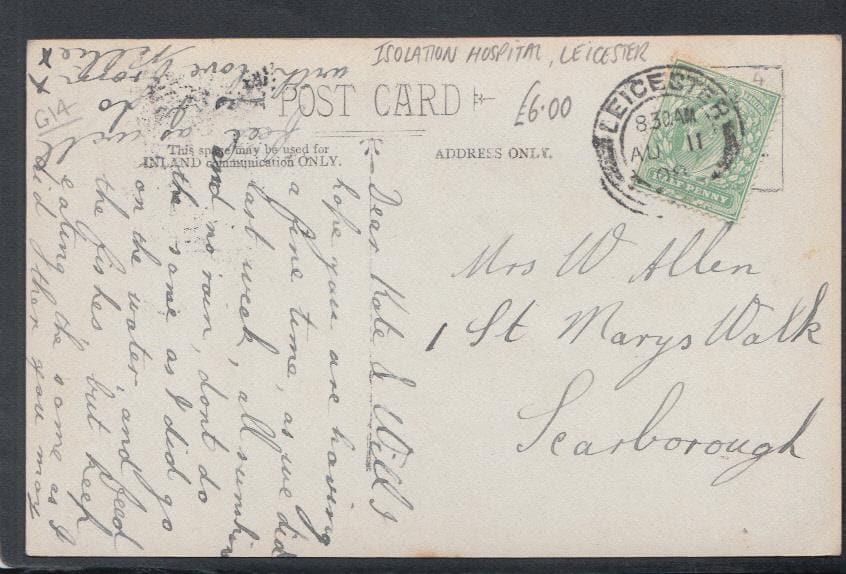 ISOLATION HOSPITAL, LEICESTER
POST CARD
£6.00
G14
4
This space may be used for
INLAND communication ONLY.
ADDRESS ONLY.
LEICESTER
8.30AM
AU 11
08
HALF PENNY
Dear Kate & Will I
hope you are having
a fine time, as we did
last week, all sunshine
and no rain, dont do
the same as I did go
on the water and feed
the fishes, but keep
eating the same as I
did then you may
feel as well
as I do
with love from
Nellie
x x
Mrs W Allen
1 St Marys Walk
Scarborough